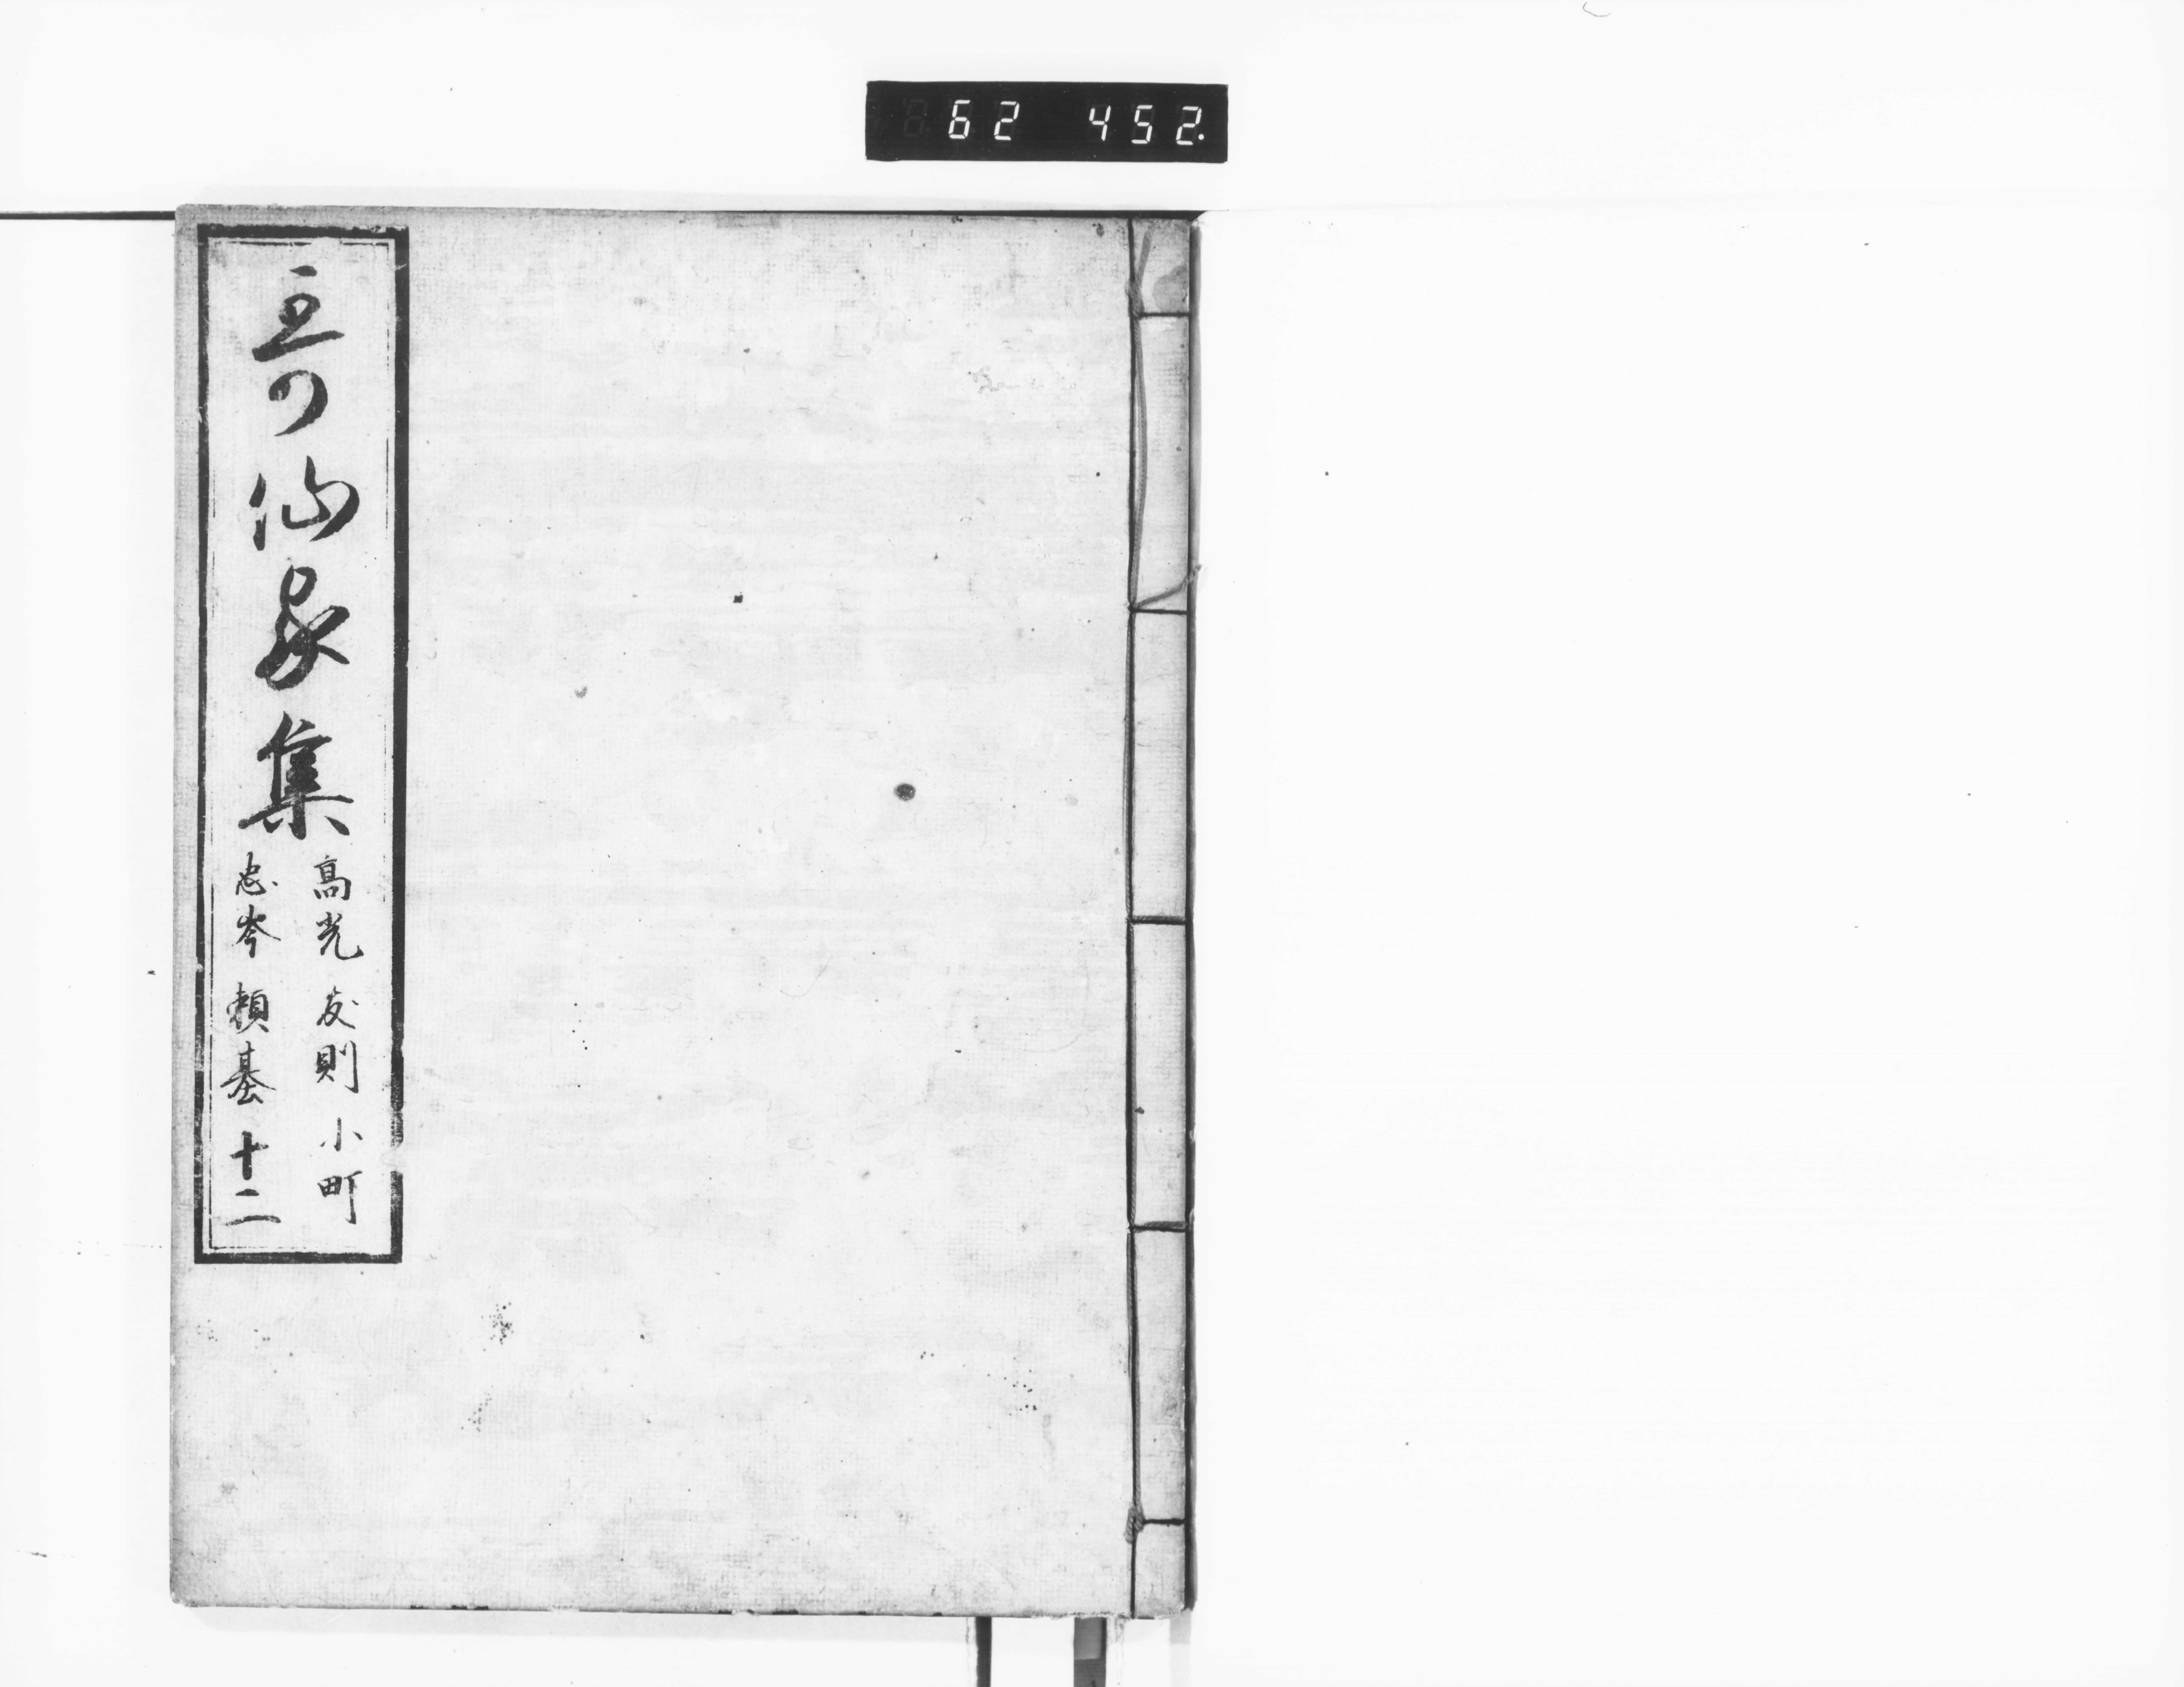 62 452.
哥仙家集
高光 友則 小町
忠岑 頼基 十二